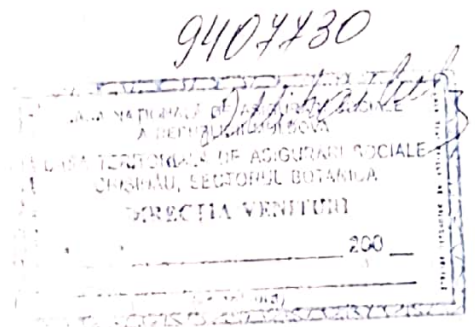 9407730
CASA NAȚIONALĂ DE ASIGURĂRI SOCIALE
A REPUBLICII MOLDOVA
CASA TERITORIALĂ DE ASIGURĂRI SOCIALE
CHIȘINĂU, SECTORUL BOTANICA
DIRECȚIA VENITURI
200